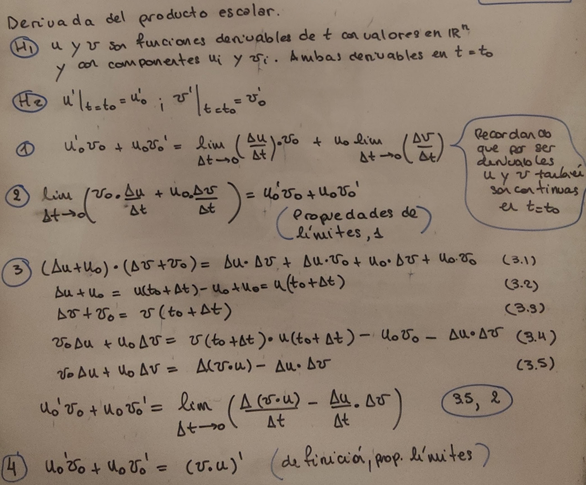 Derivada del producto escalar.
H1 u y v son funciones derivables de t con valores en ℝⁿ
y con componentes ui y vi. Ambas derivables en t=t₀
H2 u'|t=t₀ = u'₀ ; v'|t=t₀ = v'₀
1 u'₀v₀ + u₀v₀' = lim Δt→0 (Δu/Δt)·v₀ + u₀ lim Δt→0 (Δv/Δt)
Recordando
que por ser
derivables
u y v también
son continuas
en t=t₀
2 lim Δt→0 (v₀·Δu/Δt + u₀·Δv/Δt) = u₀'v₀ + u₀v₀'
(Propiedades de
límites, 1
3 (Δu+u₀)·(Δv+v₀) = Δu·Δv + Δu·v₀ + u₀·Δv + u₀·v₀ (3.1)
Δu + u₀ = u(t₀+Δt) - u₀ + u₀ = u(t₀+Δt) (3.2)
Δv + v₀ = v(t₀+Δt) (3.3)
v₀Δu + u₀Δv = v(t₀+Δt)·u(t₀+Δt) - u₀v₀ - Δu·Δv (3.4)
v₀Δu + u₀Δv = Δ(v·u) - Δu·Δv (3.5)
u₀'v₀ + u₀v₀' = lim Δt→0 (Δ(v·u)/Δt - Δu/Δt·Δv) 35, 2
4 u₀'v₀ + u₀v₀' = (v·u)' (definición, prop. límites)